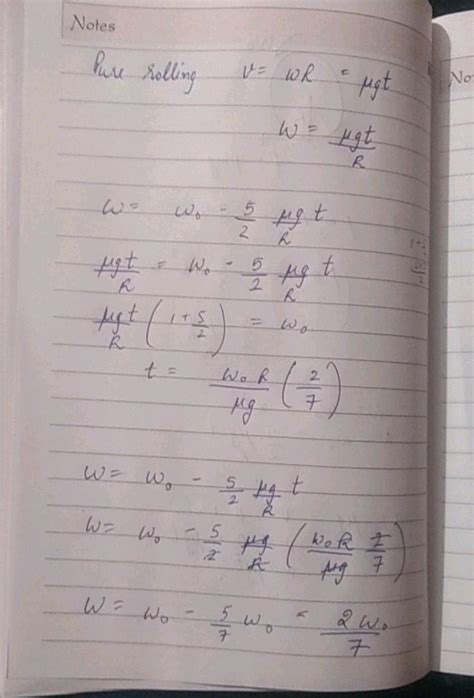 Notes
Pure rolling v = ωR = μgt
ω = μgt/R
ω = ω₀ - 5/2 μg/R t
μgt/R = ω₀ - 5/2 μg/R t
μgt/R (1 + 5/2) = ω₀
t = ω₀R/μg (2/7)
ω = ω₀ - 5/2 μg/R t
ω = ω₀ - 5/2 μg/R (ω₀R/μg 2/7)
ω = ω₀ - 5/7 ω₀ = 2ω₀/7